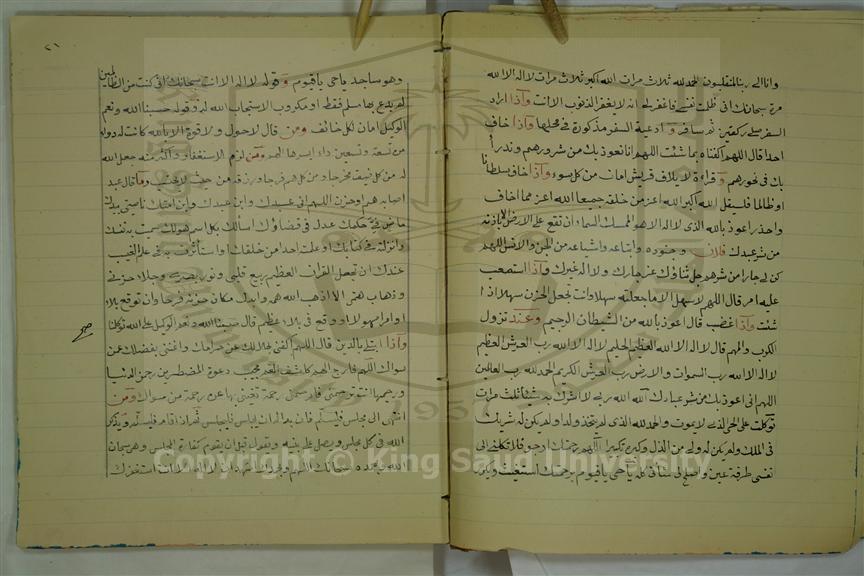 وانا الى ربنا لمنقلبون الحمد لله ثلاث مرات الله اكبر ثلاث مرات لا اله الا الله
مرة سبحانك انى ظلمت نفسى فاغفر لى انه لا يغفر الذنوب الا انت واذا اراد
السفر صلى ركعتين ثم سافر وادعية السفر مذكورة فى محلها واذا خاف
احدا قال اللهم اكفناه بما شئت اللهم انا نعوذ بك من شرورهم وندرأ
بك فى نحورهم وقراءة لايلاف قريش امان من كل سوء واذا خاف سلطانا
او ظالما فليقل الله اكبر الله اعز من خلقه جميعا الله اعز مما اخاف
واحذر اعوذ بالله الذى لا اله الا هو الممسك السماء ان تقع على الارض الا باذنه
من شر عبدك فلان وجنوده واتباعه واشياعه من الجن والانس اللهم
كن لى جارا من شرهم جل ثناؤك عز جارك ولا اله غيرك واذا استصعب
عليه امر قال اللهم لا سهل الا ما جعلته سهلا وانت تجعل الحزن سهلا اذا
شئت واذا غضب قال اعوذ بالله من الشيطان الرجيم وعند نزول
الكرب والمهم قال لا اله الا الله العظيم الحليم لا اله الا الله رب العرش العظيم
لا اله الا الله رب السموات والارض رب العرش الكريم الحمد لله رب العالمين
اللهم انى اعوذ بك من شر عبادك الله الله ربى لا اشرك به شيئا ثلث مرات
توكلت على الحى الذى لا يموت والحمد لله الذى لم يتخذ ولدا ولم يكن له شريك
فى الملك ولم يكن له ولى من الذل وكبره تكبيرا اللهم رحمتك ارجو فلا تكلنى الى
نفسى طرفة عين واصلح لى شأنى كله يا حى يا قيوم برحمتك استغيث ويكرر
٢١
وهو ساجد يا حى يا قيوم وقوله لا اله الا انت سبحانك انى كنت من الظالمين
لم يدع بها مسلم فقط او مكروب الا استجاب الله له وقوله حسبنا الله ونعم
الوكيل امان لكل خائف ومن قال لا حول ولا قوة الا بالله كانت له دواء
من تسعة وتسعين داء ايسرها الهم ومن لزم الاستغفار واكثر منه جعل الله
له من كل ضيق مخرجا ومن كل هم فرجا ورزقه من حيث لا يحتسب وما قال عبد
اصابه هم او حزن اللهم انى عبدك وابن عبدك وابن امتك ناصيتى بيدك
ماض فى حكمك عدل فى قضاؤك اسألك بكل اسم هو لك سميت به نفسك
وانزلته فى كتابك او علمته احدا من خلقك او استأثرت به فى علم الغيب
عندك ان تجعل القرآن العظيم ربيع قلبى ونور بصرى وجلاء حزنى
وذهاب همى الا اذهب الله همه وابدله مكان حزنه فرحا وان توقع بلاء
او امرا مهولا او وقع فى بلاء عظيم قال حسبنا الله ونعم الوكيل على الله توكلنا
صح
واذا ابتلى بالدين قال اللهم اكفنى بحلالك عن حرامك واغننى بفضلك عمن
سواك اللهم فارج الهم كاشف الغم مجيب دعوة المضطرين رحمن الدنيا
ورحيمها انت ترحمنى فارحمنى رحمة تغنينى بها عن رحمة من سواك ومن
انتهى الى مجلس فليسلم فان بدا له ان يجلس فليجلس ثم اذا قام فليسلم ويذكر
الله فى كل مجلس ويصلى على نبيه ويقول قبل ان يقوم كفارة المجلس وهو سبحان
الله وبحمده سبحانك اللهم وبحمدك اشهد ان لا اله الا انت استغفرك
Copyright © King Saud University
1957